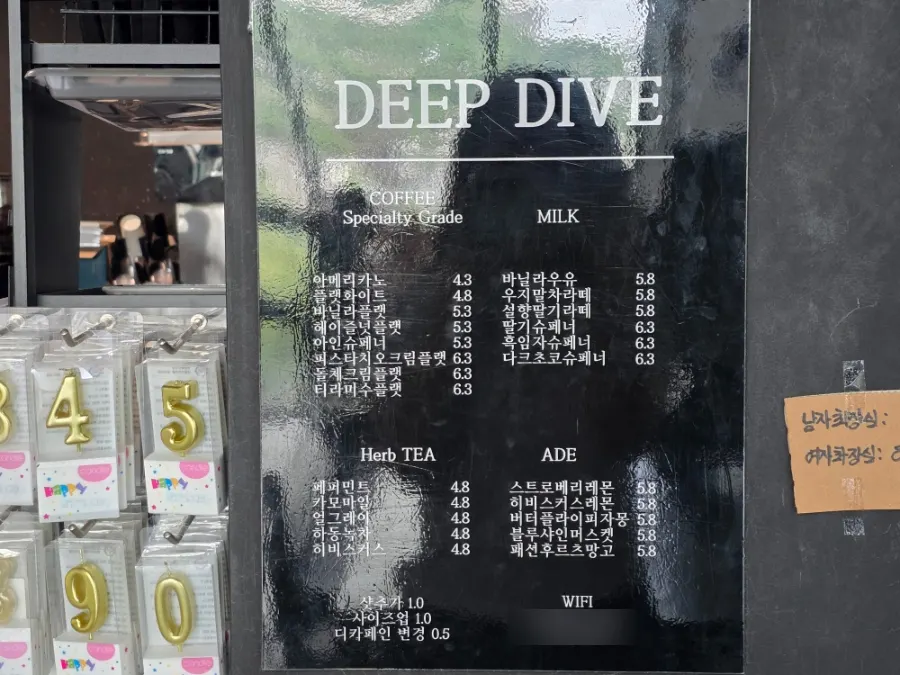 DEEP DIVE
COFFEE
Specialty Grade
아메리카노 4.3
플랫화이트 4.8
바닐라플랫 5.3
헤이즐넛플랫 5.3
아인슈페너 5.3
피스타치오크림플랫 6.3
돌체크림플랫 6.3
티라미수플랫 6.3
MILK
바닐라우유 5.8
우지말차라떼 5.8
설향딸기라떼 5.8
딸기슈페너 6.3
흑임자슈페너 6.3
다크초코슈페너 6.3
Herb TEA
페퍼민트 4.8
카모마일 4.8
얼그레이 4.8
하동녹차 4.8
히비스커스 4.8
ADE
스트로베리레몬 5.8
히비스커스레몬 5.8
버터플라이피자몽 5.8
블루샤인머스켓 5.8
패션후르츠망고 5.8
샷추가 1.0
사이즈업 1.0
디카페인 변경 0.5
WIFI
남자화장실:
여자화장실:
4
5
9
0
happy
candle
happy
candle
happy
candle